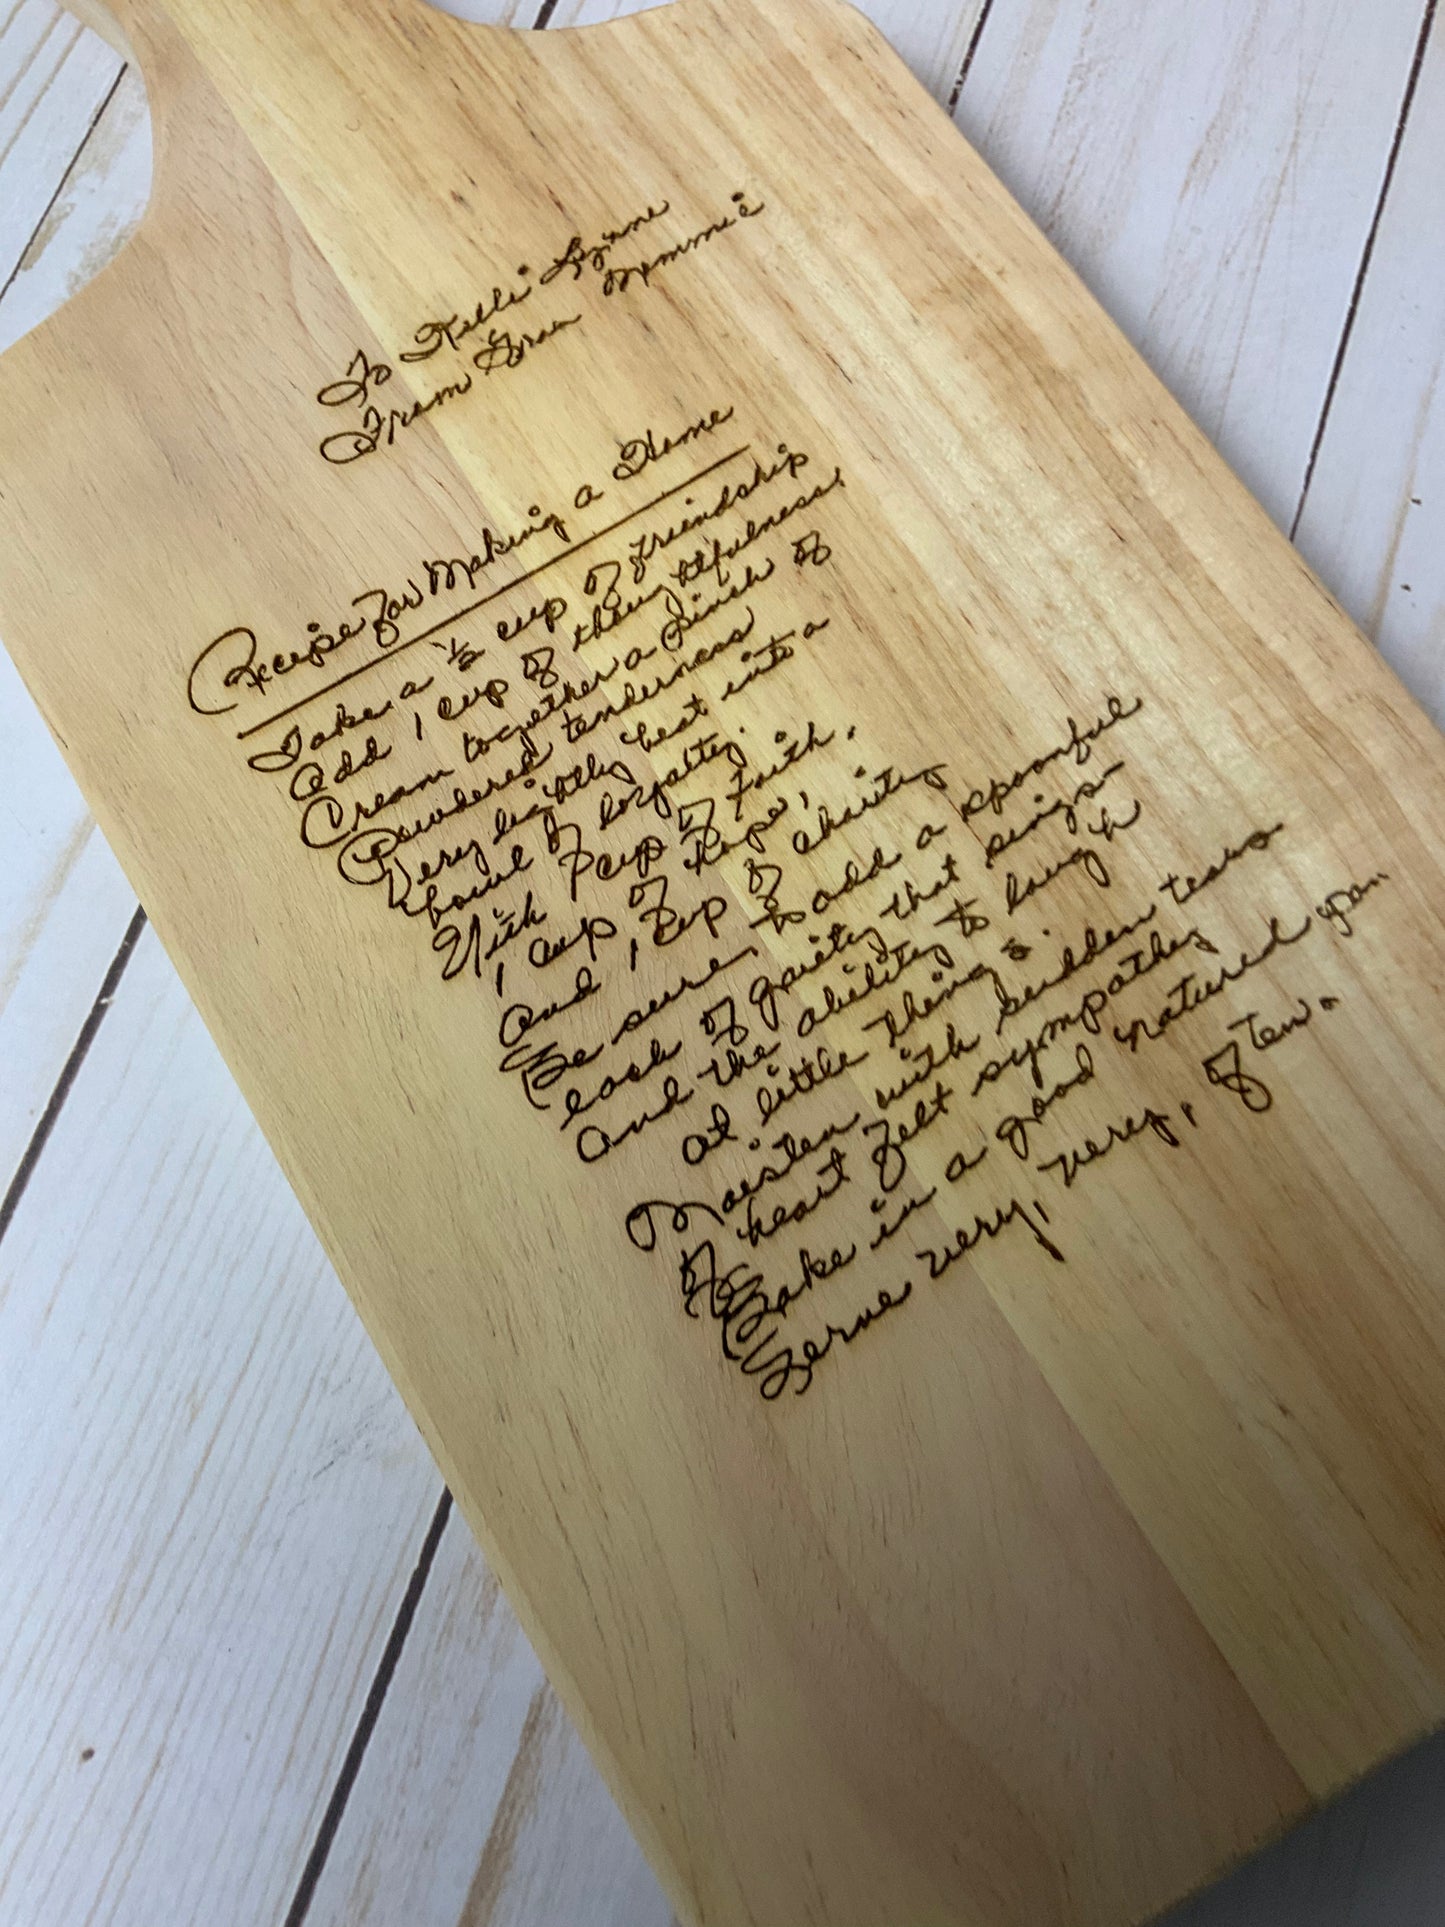 To Kelli Lynne
From Gran Mommie
Recipe for Making a Home
Take a ½ cup of friendship
Add 1 cup of thoughtfulness,
Cream together a Pinch of
Powdered tenderness
Very lightly beat into a
bowl of loyalty.
With 1 cup of Faith,
1 cup of hope,
And 1 cup of charity
Be sure, to add a spoonful
each of gaiety that sings-
And the ability to laugh
at little things.
Moisten with sudden tears
of heart felt sympathy
Bake in a good natured pan.
Serve very, very, often.